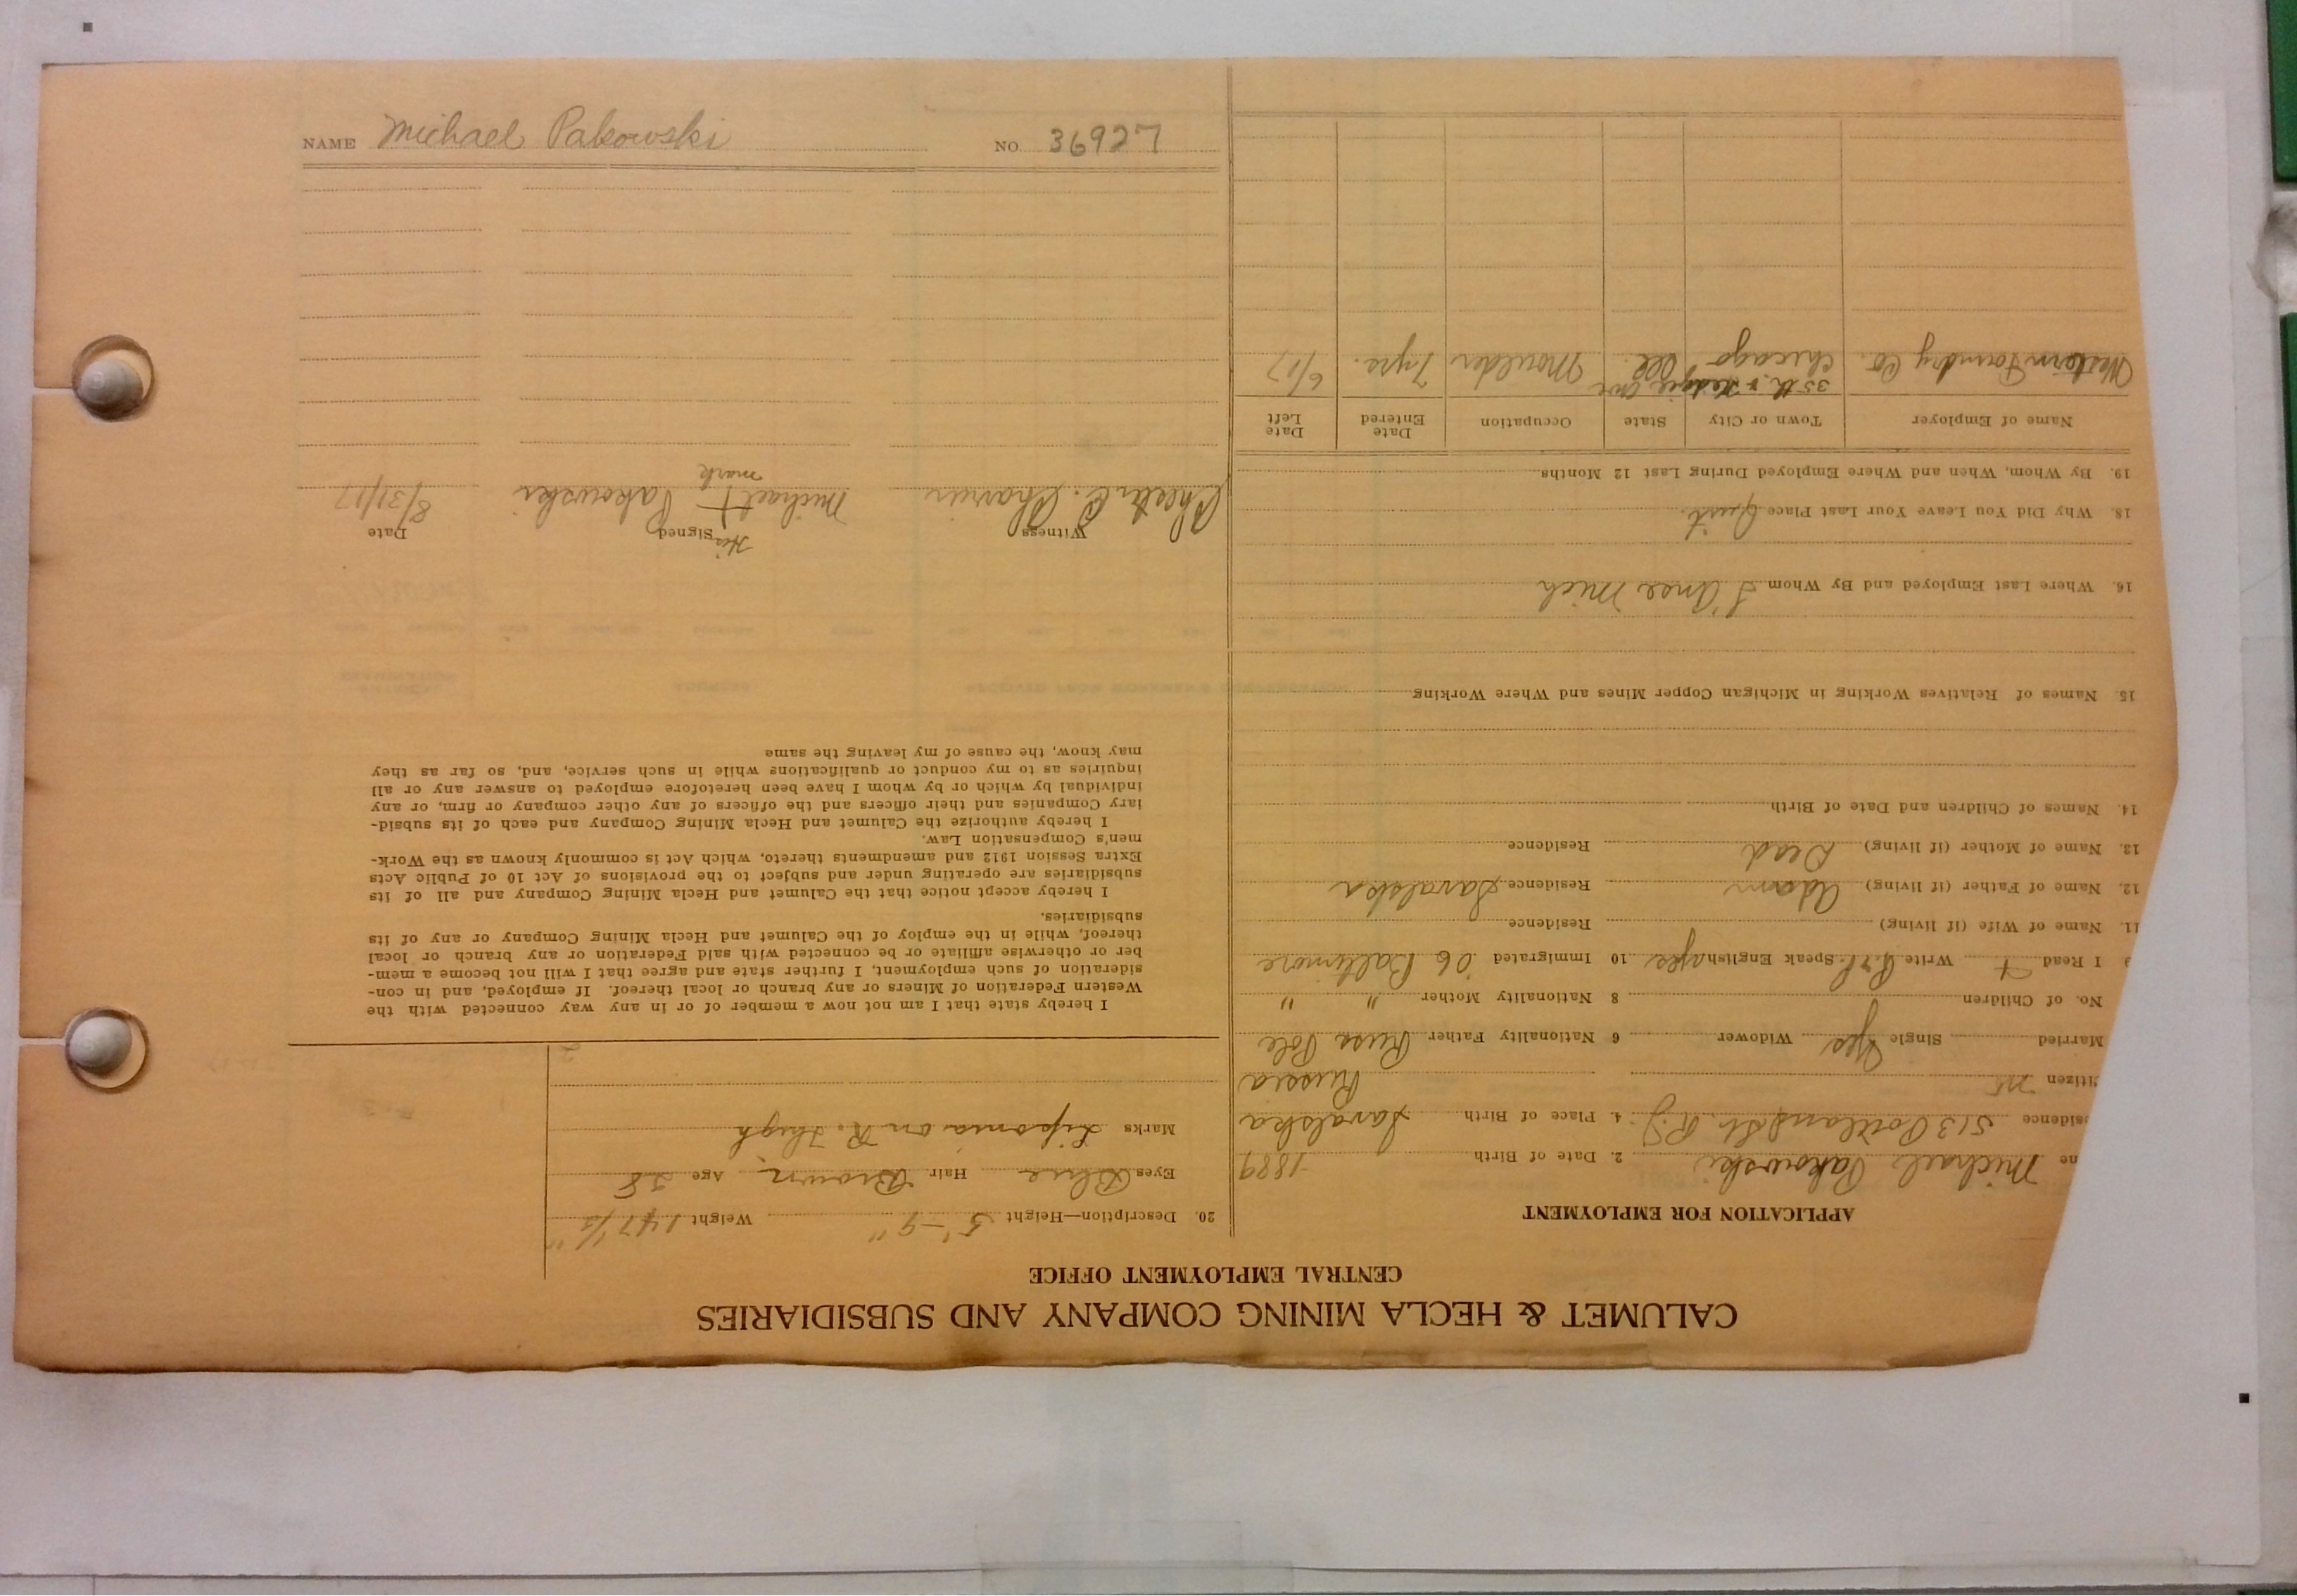 CALUMET & HECLA MINING COMPANY AND SUBSIDIARIES
CENTRAL EMPLOYMENT OFFICE
APPLICATION FOR EMPLOYMENT
me Michael Pakowski 2. Date of Birth 1889
sidence 513 Portland St. 4. Place of Birth Savalska
itizen no Russia
Married Single Yes Widower 6 Nationality Father Russ Pole
No. of Children 8 Nationality Mother " "
9 I Read + Write Speak English yes 10 Immigrated '06 Baltimore
11. Name of Wife (if living) Residence
12. Name of Father (if living) Adam Residence Savalska
13. Name of Mother (if living) Dead Residence
14. Names of Children and Date of Birth
15. Names of Relatives Working in Michigan Copper Mines and Where Working
16. Where Last Employed and By Whom L'Anse Mich
18. Why Did You Leave Your Last Place Quit
19. By Whom, When and Where Employed During Last 12 Months
Name of Employer Town or City State Occupation Date Entered Date Left
35th & Kedzie Ave
Western Foundry Co. Chicago Ill. Moulder 7 yrs. 6/17
20. Description—Height 5'-9" Weight 147 1/2
Eyes Blue Hair Brown Age 28
Marks on R. Thigh
I hereby state that I am not now a member of or in any way connected with the
Western Federation of Miners or any branch or local thereof. If employed, and in con-
sideration of such employment, I further state and agree that I will not become a mem-
ber or otherwise affiliate or be connected with said Federation or any branch or local
thereof, while in the employ of the Calumet and Hecla Mining Company or any of its
subsidiaries.
I hereby accept notice that the Calumet and Hecla Mining Company and all of its
subsidiaries are operating under and subject to the provisions of Act 10 of Public Acts
Extra Session 1912 and amendments thereto, which Act is commonly known as the Work-
men's Compensation Law.
I hereby authorize the Calumet and Hecla Mining Company and each of its subsid-
iary Companies and their officers and the officers of any other company or firm, or any
individual by which or by whom I have been heretofore employed to answer any or all
inquiries as to my conduct or qualifications while in such service, and, so far as they
may know, the cause of my leaving the same
Witness Signed Date
His
Michael + Pakowski 8/31/17
mark
NAME Michael Pakowski NO. 36927